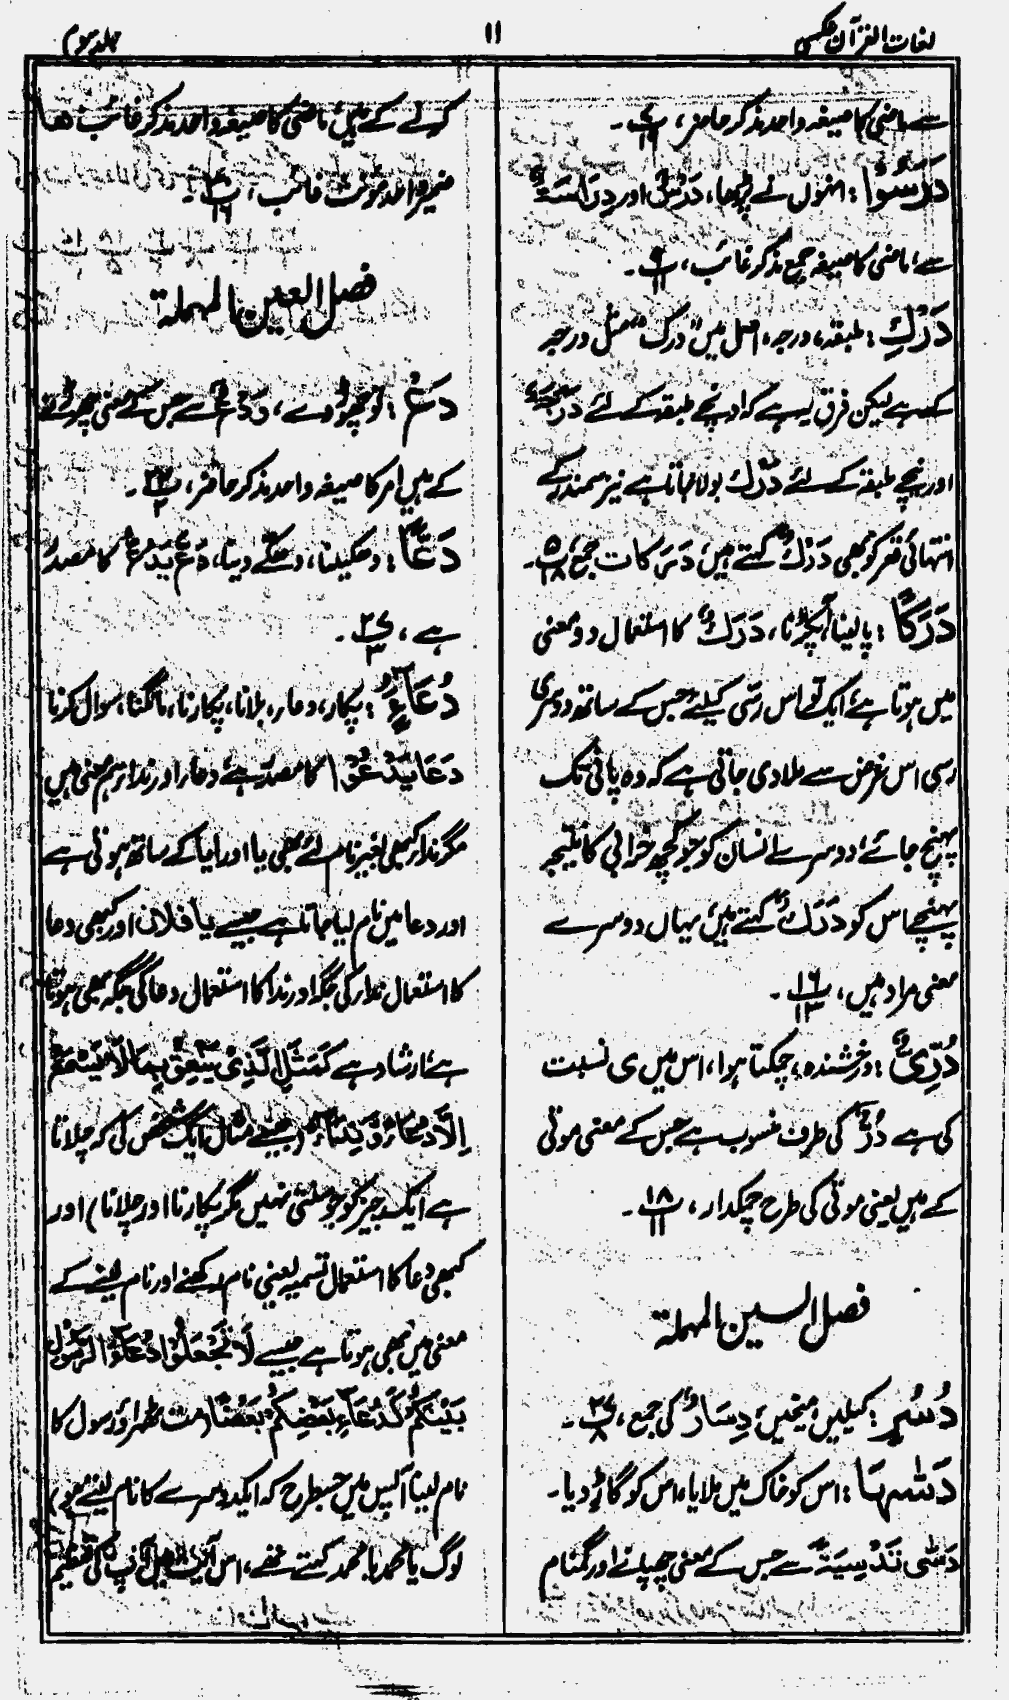 لغات القرآن عکسی
۱۱
جلد سوم
سے ماضی کا صیغہ واحد مذکر حاضر، پ
دَرَسُوْا : انہوں نے پڑھا، دَرْسٌ اور دِرَاسَةٌ
سے، ماضی کا صیغہ جمع مذکر غائب، پ ۹ ۱۱ ۔
دَرْكِ : طبقہ، درجہ، اصل میں "درک" مثل درجہ
کے ہے لیکن فرق یہ ہے کہ اونچے طبقہ کے لئے دَرَجَةٌ
اور نیچے طبقہ کے لئے دَرْكٌ بولا جاتا ہے نیز سمندر کے
انتہائی قعر کو بھی دَرْكٌ کہتے ہیں، دَرَكات جمع، پ ۵ ۱۸ ۔
دَرَكًا : پا لینا، آپکڑنا، دَرَكٌ کا استعمال دو معنی
میں ہوتا ہے، ایک تو اس رسّی کیلئے جس کے ساتھ دوسری
رسی اس غرض سے ملا دی جاتی ہے کہ وہ پانی تک
پہنچ جائے، دوسرے انسان کو جو کچھ خرابی کا نتیجہ
پہنچے اس کو دَرَكٌ کہتے ہیں، یہاں دوسرے
معنی مراد ہیں، پ ۱۶ ۱۳ ۔
دُرِّیٌّ : درخشندہ، چمکتا ہوا، اس میں ی نسبت
کی ہے دُرٌّ کی طرف منسوب ہے جس کے معنی موتی
کے ہیں یعنی موتی کی طرح چمکدار، پ ۱۸ ۱۱ ۔
فصل السین المہملة
دُسُرٍ : کیلیں، میخیں، دِسَارٌ کی جمع، پ ۲۷ ۸ ۔
دَسّٰىهَا : اس کو خاک میں ملایا، اس کو گاڑ دیا۔
دَسّٰى تَدْسِیَةً سے جس کے معنی چھپانے اور گمنام
کرنے کے ہیں، ماضی کا صیغہ واحد مذکر غائب ھا
ضمیر واحد مؤنث غائب، پ
فصل العین المہملة
دَعْ : تو چھوڑ دے، وَدْعٌ سے جس کے معنی چھوڑنے
کے ہیں امر کا صیغہ واحد مذکر حاضر، پ ۲۲ ۲ ۔
دَعًّا : دھکیلنا، دھکے دینا، دَعَّ یَدُعُّ کا مصدر
ہے، پ ۲۷ ۳ ۔
دُعَاءٌ : پکار، دعا، بلانا، پکارنا، مانگنا، سوال کرنا
دَعَا یَدْعُوْا کا مصدر ہے، دعار اور ندار ہم معنی ہیں
مگر ندار کبھی بغیر نام لئے بھی یا اور ایا کے ساتھ ہوتی ہے
اور دعا میں نام لیا جاتا ہے جیسے یا فلان اور کبھی دعا
کا استعمال ندار کی جگہ اور ندا کا استعمال دعا کی جگہ بھی ہوتا
ہے، ارشاد ہے كَمَثَلِ الَّذِیْ یَنْعِقُ بِمَا لَا یَسْمَعُ
اِلَّا دُعَاءً وَّنِدَاءً (جیسے مثال ایک شخص کی کہ چلاتا
ہے ایک چیز کو جو سنتی نہیں مگر پکارنا اور چلانا) اور
کبھی دعا کا استعمال تسمیہ یعنی نام رکھنے اور نام لینے کے
معنی میں بھی ہوتا ہے جیسے لَا تَجْعَلُوْا دُعَاءَ الرَّسُوْلِ
بَیْنَكُمْ كَدُعَاءِ بَعْضِكُمْ بَعْضًا (مت ٹھراؤ رسول کا
نام لینا آپس میں جسطرح کہ ایک دوسرے کا نام لیتے ہو)
لوگ یا محمد یا محمد کہتے تھے، اس آیت میں آپ کی تعظیم